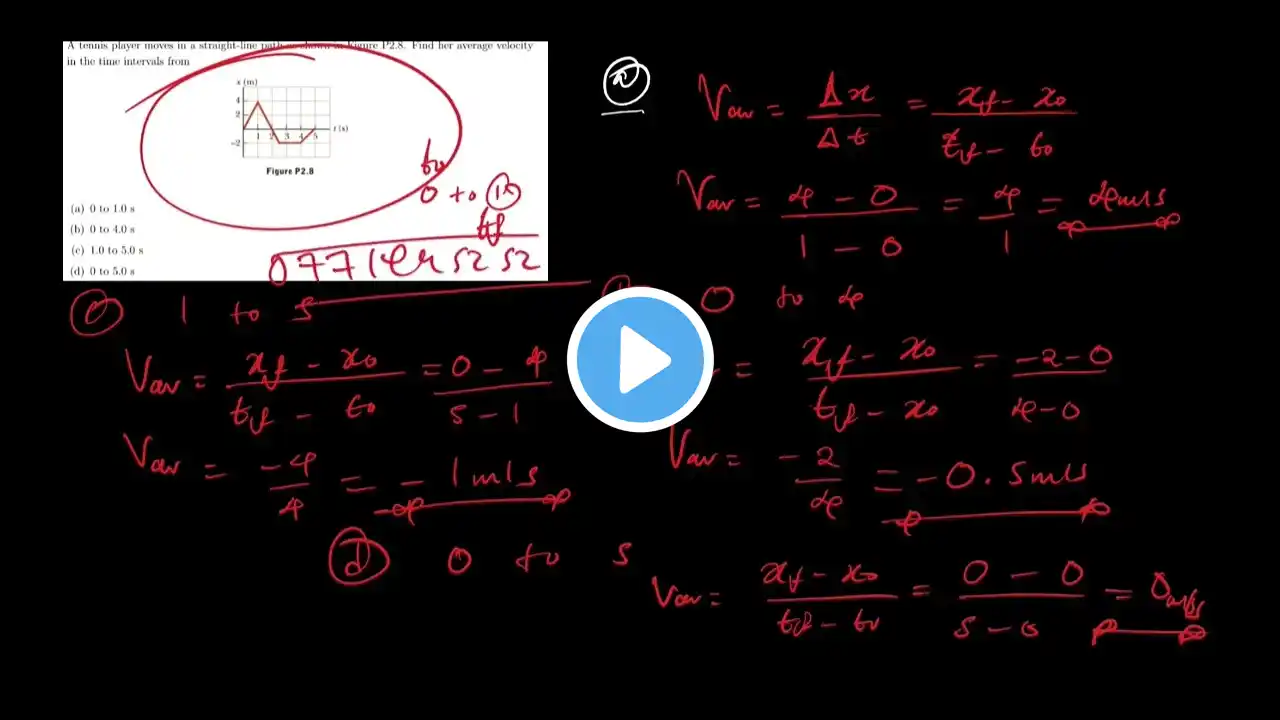 A tennis player moves in a straight-line path as shown in Figure P2.8. Find her average velocity
in the time intervals from
x (m)
4
2
−2
1 2 3 4 5
t (s)
Figure P2.8
(a) 0 to 1.0 s
(b) 0 to 4.0 s
(c) 1.0 to 5.0 s
(d) 0 to 5.0 s
t0
0 to 1s
tf
Vav = Δx/Δt = (xf - x0)/(tf - t0)
Vav = (4 - 0)/(1 - 0) = 4/1 = 4m/s
0 to 4
= (xf - x0)/(tf - x0) = (-2 - 0)/(4 - 0)
Vav = -2/4 = -0.5m/s
1 to 5
Vav = (xf - x0)/(tf - t0) = (0 - 4)/(5 - 1)
Vav = -4/4 = -1m/s
d 0 to 5
Vav = (xf - x0)/(tf - t0) = (0 - 0)/(5 - 0) = 0m/s